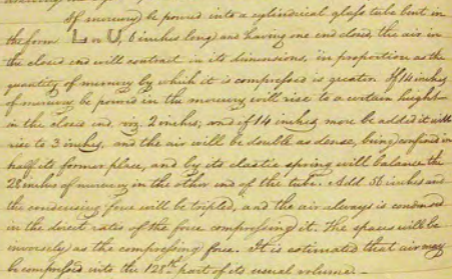 If mercury be poured into a cylindrical glass tube bent in
the form L or U, 6 inches long and having one end closed, the air in
the closed end will contract in its dimensions, in proportion as the
quantity of mercury by which it is compressed is greater. If 14 inches
of mercury be poured in the mercury will rise to a certain height
in the closed end, viz. 2 inches, and if 14 inches more be added it will
rise to 3 inches, and the air will be double as dense, being confined in
half its former place, and by its elastic spring will balance the
28 inches of mercury in the other end of the tube. Add 56 inches and
the condensing force will be tripled, and the air always is condensed
in the direct rates of the force compressing it. The spaces will be
inversely as the compressing force. It is estimated that air may
be compressed into the 128th part of its usual volume. –